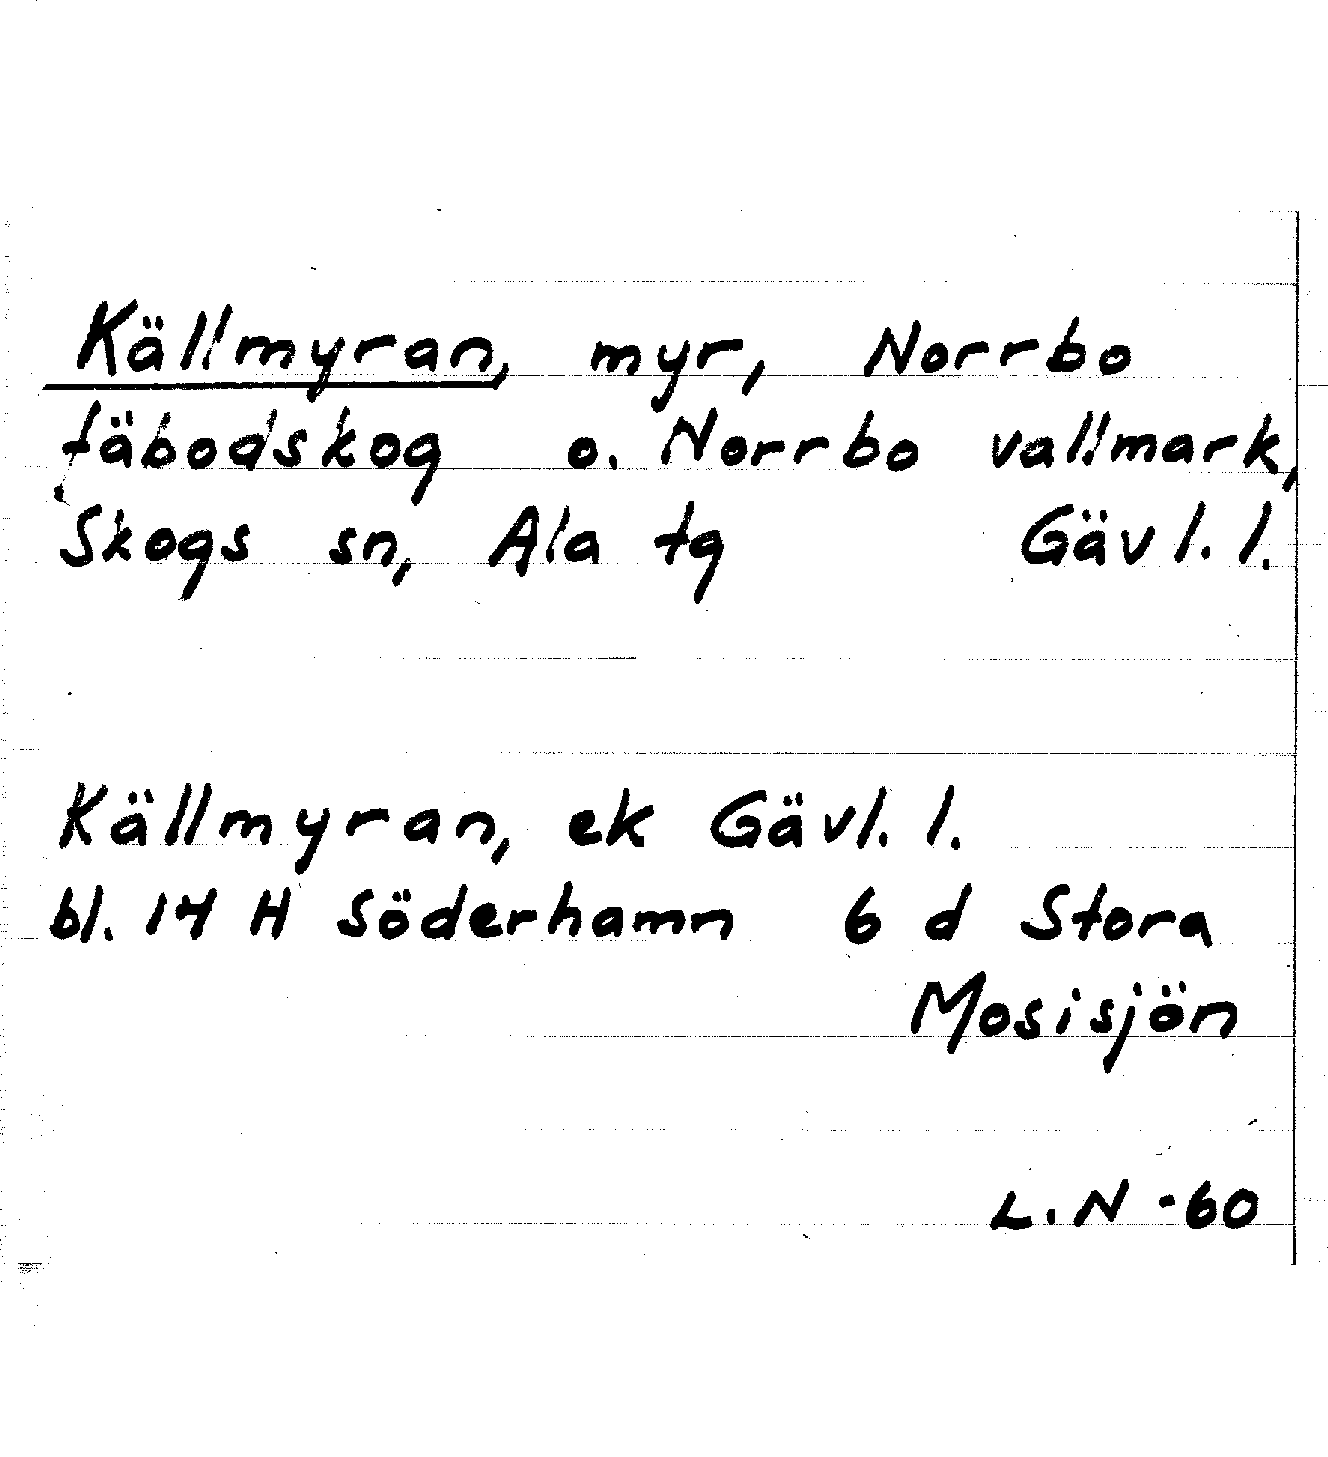 Källmyran, myr, Norrbo
fäbodskog o. Norrbo vallmark,
Skogs sn, Ala tg Gävl. l.
Källmyran, ek Gävl. l.
bl. 14 H Söderhamn 6 d Stora
Mosisjön
L.N -60